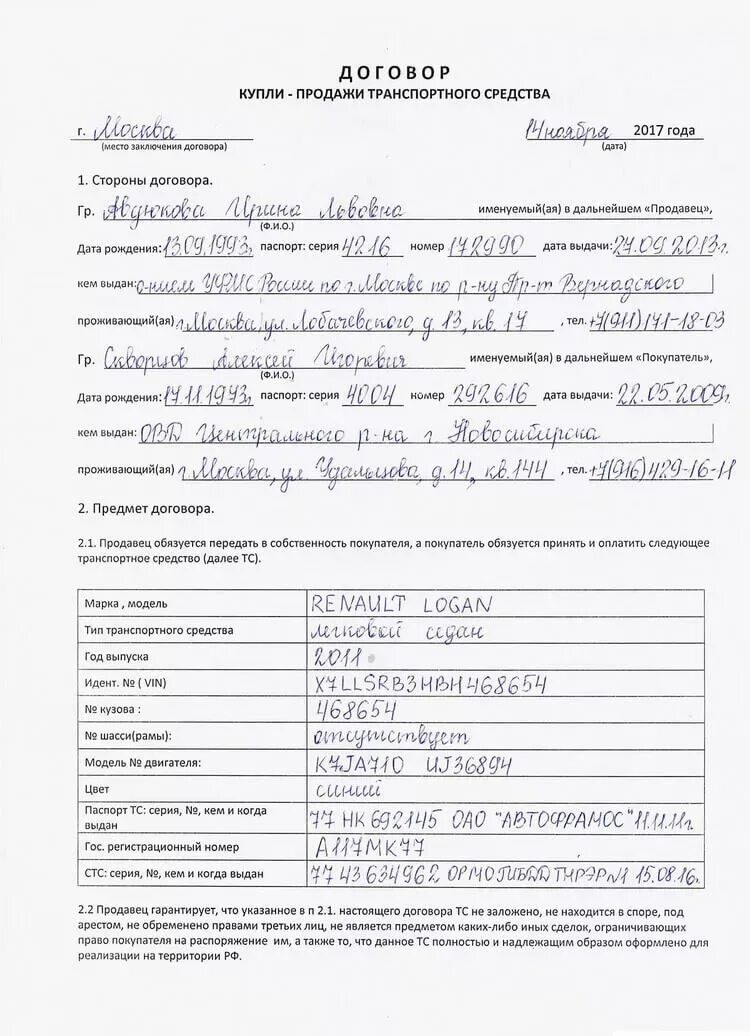 ДОГОВОР
КУПЛИ - ПРОДАЖИ ТРАНСПОРТНОГО СРЕДСТВА
г. Москва 14 ноября 2017 года
(место заключения договора) (дата)
1. Стороны договора.
Гр. Авдюкова Ирина Львовна именуемый(ая) в дальнейшем «Продавец»,
(Ф.И.О.)
Дата рождения: 13.09.1993г паспорт: серия 4216 номер 172990 дата выдачи: 27.09.2013г.
кем выдан: о-нием УФМС России по г. Москве по р-ну Пр-т Вернадского
проживающий(ая) г. Москва, ул. Лобачевского, д. 13, кв. 17 , тел. +7(911)171-18-03
Гр. Скворцов Алексей Игоревич именуемый(ая) в дальнейшем «Покупатель»,
(Ф.И.О.)
Дата рождения: 17.11.1973г паспорт: серия 4004 номер 292616 дата выдачи: 22.05.2009г.
кем выдан: ОВД Центрального р-на г Новосибирска
проживающий(ая) г. Москва, ул. Удальцова, д. 14, кв. 144 , тел. +7(916)429-16-11
2. Предмет договора.
2.1. Продавец обязуется передать в собственность покупателя, а покупатель обязуется принять и оплатить следующее
транспортное средство (далее ТС).
Марка , модель RENAULT LOGAN
Тип транспортного средства легковой седан
Год выпуска 2011
Идент. № ( VIN) X7LLSRB3HBH468654
№ кузова : 468654
№ шасси(рамы): отсутствует
Модель № двигателя: K7JA710 UJ36894
Цвет синий
Паспорт ТС: серия, №, кем и когда 77 НК 692145 ОАО "АВТОФРАМОС" 11.11.11г.
выдан
Гос. регистрационный номер А117МК77
СТС: серия, №, кем и когда выдан 77 43 634962 ОРМОГИБДД ТНРЭР№1 15.08.16г.
2.2 Продавец гарантирует, что указанное в п 2.1. настоящего договора ТС не заложено, не находится в споре, под
арестом, не обременено правами третьих лиц, не является предметом каких-либо иных сделок, ограничивающих
право покупателя на распоряжение им, а также то, что данное ТС полностью и надлежащим образом оформлено для
реализации на территории РФ.